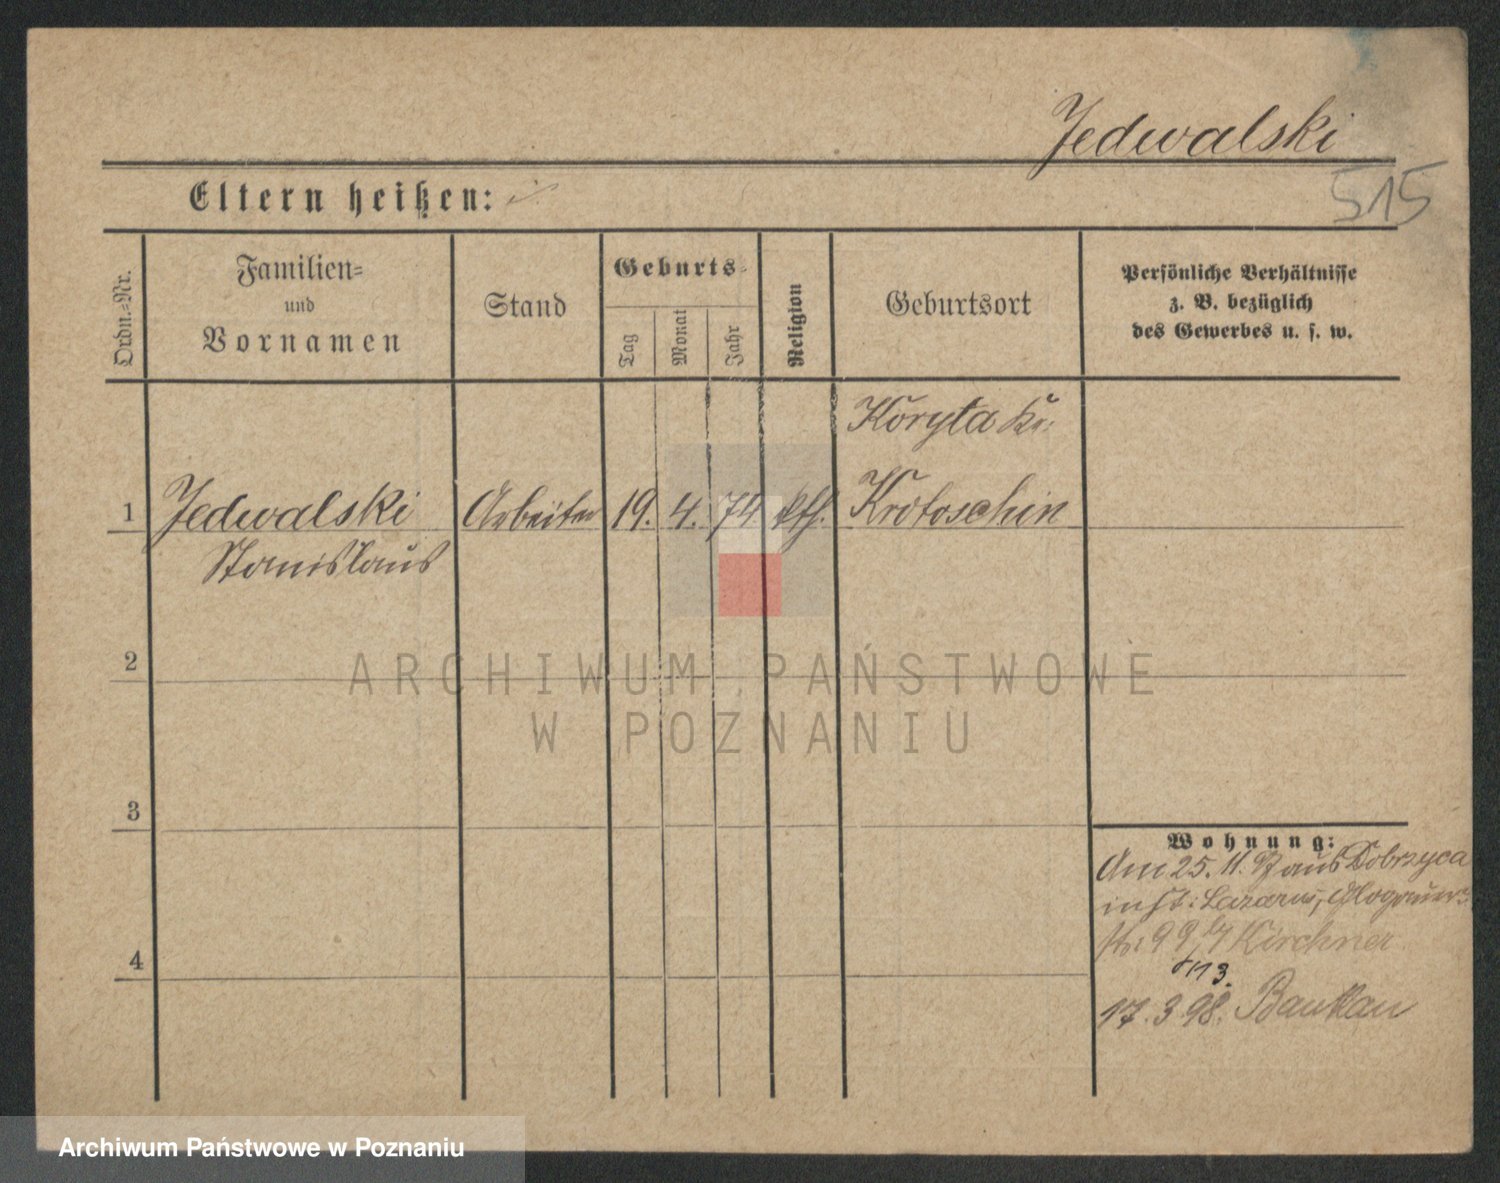 Jedwalski
515
Eltern heißen:
Ordn.-Nr.
Familien-
und
Vornamen
Stand
Geburts-
Tag
Monat
Jahr
Religion
Geburtsort
Persönliche Verhältnisse
z. B. bezüglich
des Gewerbes u. s. w.
Koryta Kr:
1 Jedwalski Arbeiter 19. 4. 74 kth. Krotoschin
Stanislaus
2
ARCHIWUM PAŃSTWOWE
W POZNANIU
3
4
Wohnung:
Am 25. 11. 97 aus Dobrzyca
in St: Lazarus, Glogauer
str: 99 b/ Kirchner
17. 3. 98.
Archiwum Państwowe w Poznaniu